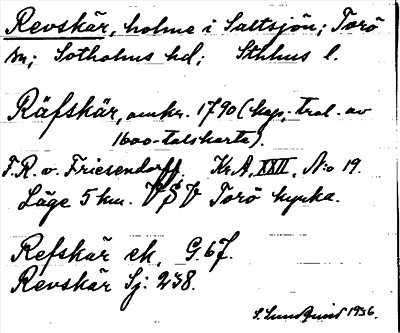 Revskär, holme i Saltsjön; Torö
sn; Sotholms hd; Sthlms l.
Räfskär, omkr. 1790 (kop. trol. av
1600-talskarta).
F.R. v. Friesendorff. Kr.A. XXII, N:o 19.
Läge 5 km. VSV Torö kyrka.
Refskär ek. G. 67.
Revskär Sj. 238.
S. Lundqvist 1936.